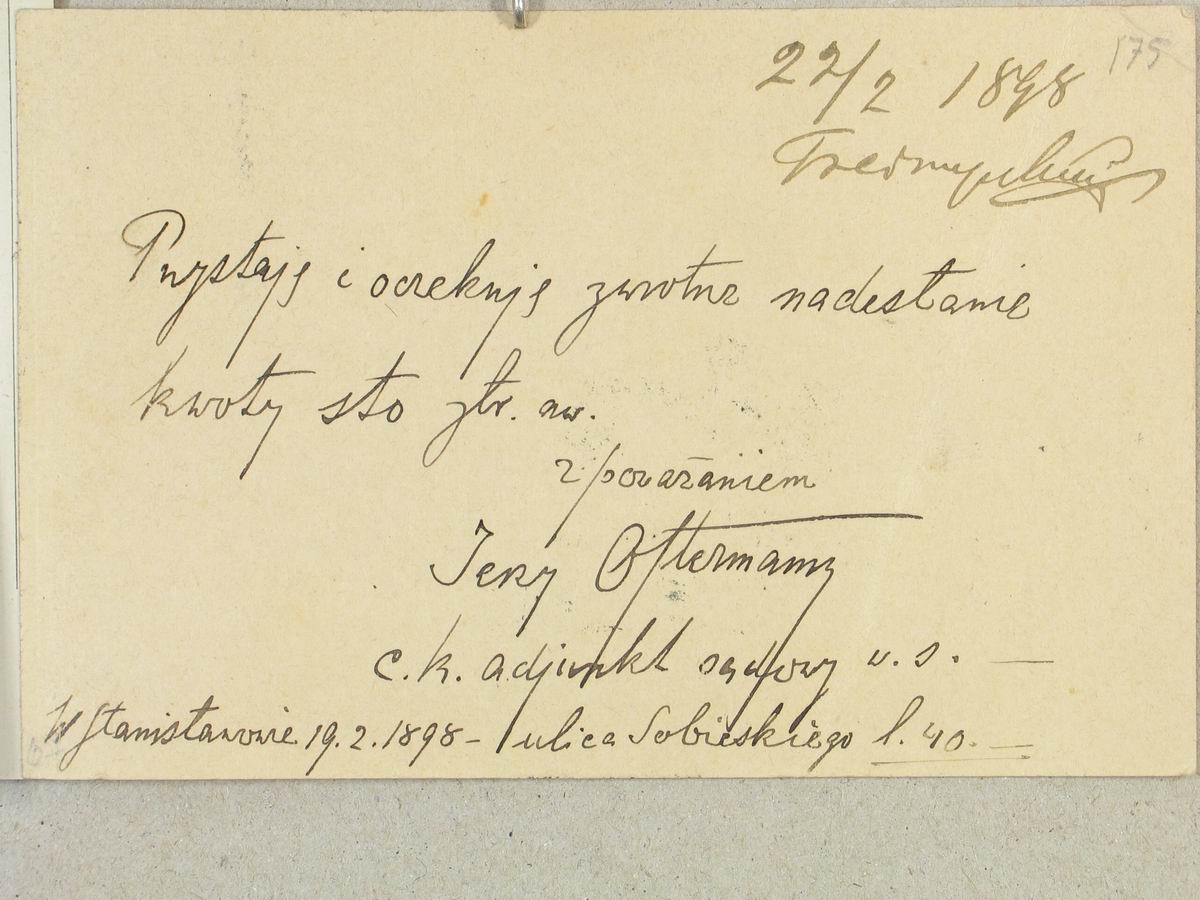 175
22/2 1898
Przystaję i oczekuję zwrotnie nadesłanie
kwoty sto złr. aw.
z poważaniem
Jerzy Ostermann
c. k. adjunkt sądowy w. s. —
W Stanisławowie 19.2.1898 – ulica Sobieskiego l. 40. —